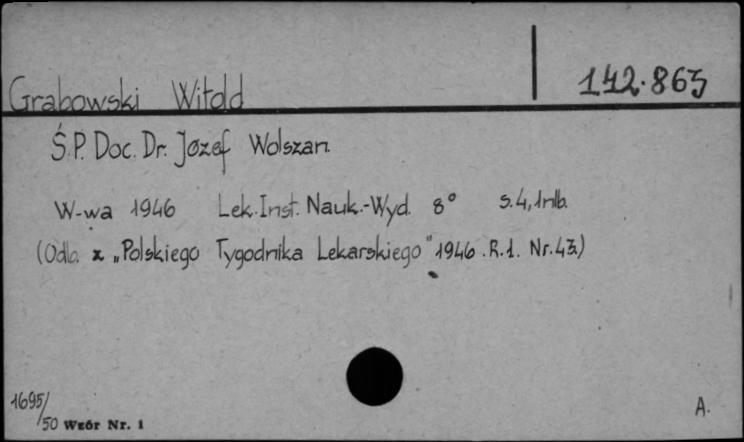 142.865
Grabowski Witold
Ś.P. Doc. Dr. Józef Wolszan.
W-wa 1946 Lek. Inst. Nauk.-Wyd. 8° s. 4, 1nlb.
(Odb. z „Polskiego Tygodnika Lekarskiego" 1946. R.1. Nr. 43.)
1695/50 Wzór Nr. 1
A.